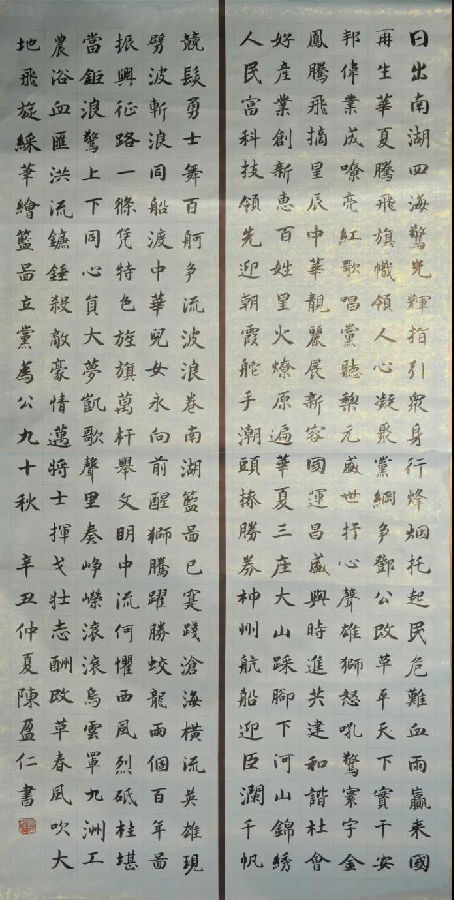 日出南湖四海驚光輝指引眾身行烽烟托起民危難血雨贏来國
再生華夏騰飛旗幟領人心凝聚黨綱争鄧公改革平天下實干安
邦偉業成嘹亮紅歌唱黨聽黎元盛世抒心聲雄獅怒吼驚寰宇金
鳳騰飛摘星辰中華靚麗展新容國運昌盛興時進共建和諧社會
好産業創新惠百姓星火燎原遍華夏三座大山踩腳下河山錦綉
人民富科技領先迎朝霞舵手潮頭捧勝券神州航船迎巨瀾千帆
競鼓勇士舞百舸争流波浪卷南湖籃啚已寔踐滄海橫流英雄現
劈波斬浪同船渡中華兒女永向前醒獅騰躍勝蛟龍兩個百年啚
振興征路一條凭特色旌旗萬杆舉文明中流何懼西風烈砥柱堪
當鉅浪驚上下同心負大夢凱歌聲里奏崢嶸滾滾烏雲罩九洲工
農浴血匯洪流鐮錘殺敵豪情邁將士揮戈壮志酬改革春風吹大
地飛旋綵筆繪籃啚立黨為公九十秋 辛丑仲夏陳盈仁書